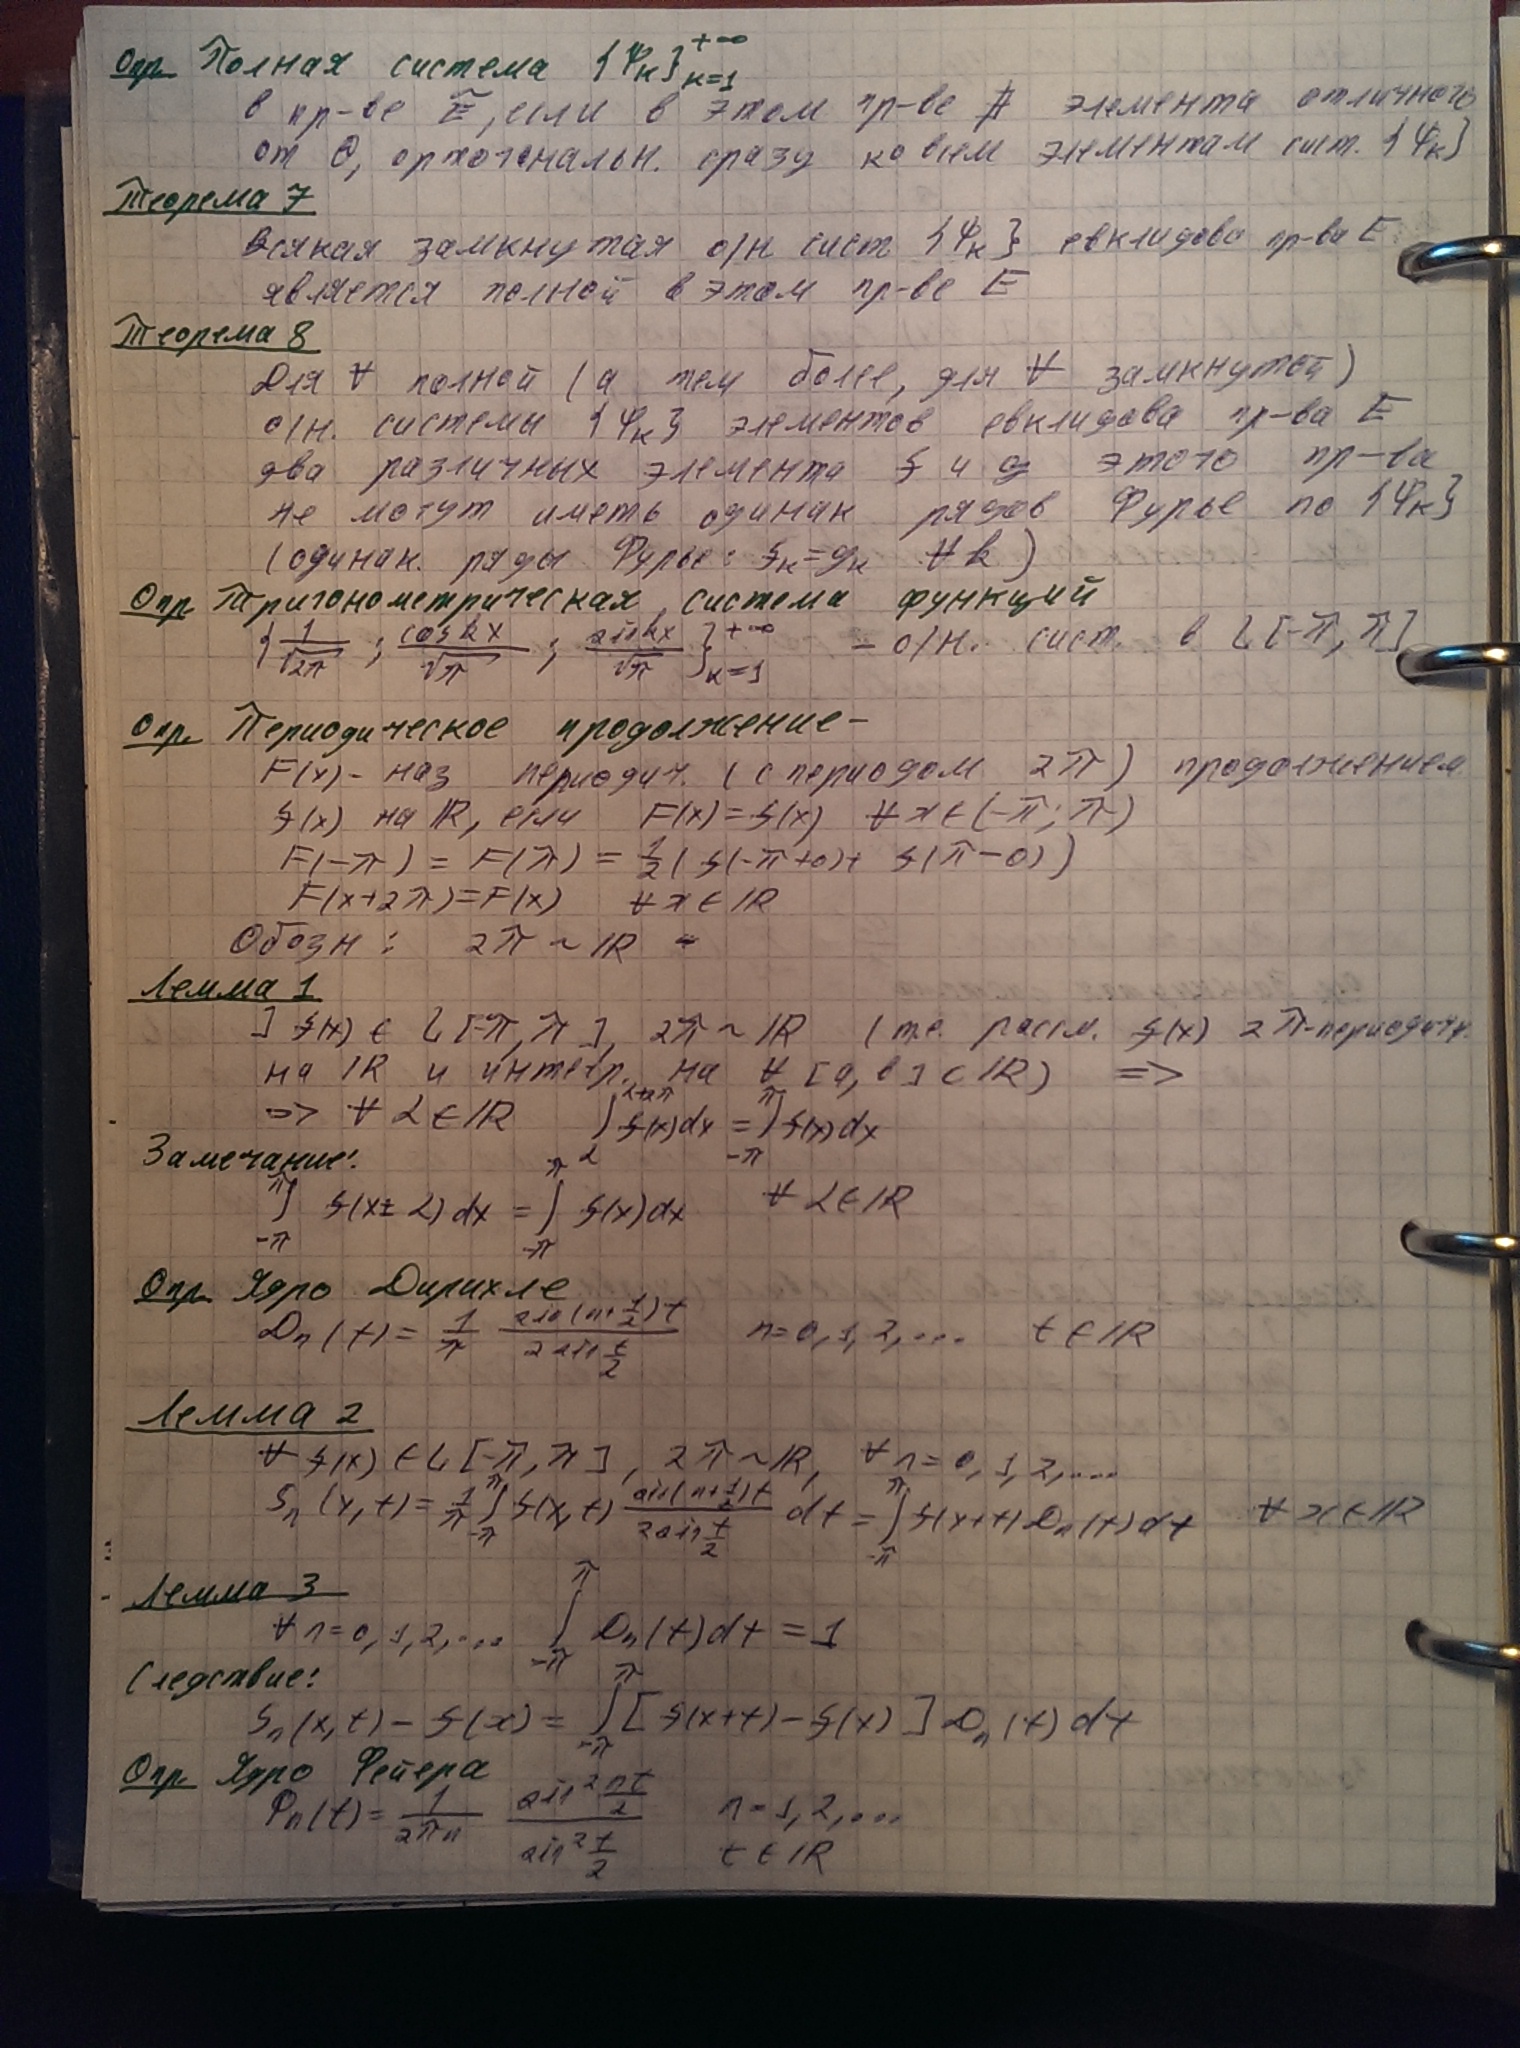 Опр. Полная система {Ψ_k}_{k=1}^{+∞}
в пр-ве E, если в этом пр-ве ∄ элемента отличного
от θ, ортогональн. сразу ко всем элементам сист. {Ψ_k}
Теорема 7
Всякая замкнутая о/н сист {Ψ_k} евклидова пр-ва E
является полной в этом пр-ве E
Теорема 8
Для ∀ полной (а тем более, для ∀ замкнутой)
о/н. системы {Ψ_k} элементов евклидова пр-ва E
два различных элемента f и g этого пр-ва
не могут иметь одинак рядов Фурье по {Ψ_k}
(одинак. ряды Фурье: f_k = g_k ∀ k)
Опр Тригонометрическая система функций
{1/√2π ; cos kx/√π ; sin kx/√π}_{k=1}^{+∞} – о/н. сист. в L[-π, π]
Опр. Периодическое продолжение –
F(x) – наз периодич. (с периодом 2π) продолжением
f(x) на ℝ, если F(x) = f(x) ∀ x ∈ (-π; π)
F(-π) = F(π) = 1/2 (f(-π+0) + f(π-0))
F(x+2π) = F(x) ∀ x ∈ ℝ
Обозн: 2π ~ ℝ -
Лемма 1
] f(x) ∈ L[-π, π], 2π ~ ℝ (т.е. рассм. f(x) 2π-периодичн.
на ℝ и интегр. на ∀ [a, b] ⊂ ℝ) =>
=> ∀ α ∈ ℝ ∫_α^{α+2π} f(x)dx = ∫_{-π}^{π} f(x)dx
Замечание:
∫_{-π}^{π} f(x±α)dx = ∫_{-π}^{π} f(x)dx ∀ α ∈ ℝ
Опр. Ядро Дирихле
D_n(t) = 1/π sin(n+1/2)t / 2 sin t/2 n=0,1,2,... t ∈ ℝ
Лемма 2
∀ f(x) ∈ L[-π, π], 2π ~ ℝ, ∀ n = 0, 1, 2, ....
S_n(x,t) = 1/π ∫_{-π}^{π} f(x,t) sin(n+1/2)t / 2 sin t/2 dt = ∫_{-π}^{π} f(x+t) D_n(t)dt ∀ x ∈ ℝ
Лемма 3
∀ n=0, 1, 2, ... ∫_{-π}^{π} D_n(t)dt = 1
Следствие:
S_n(x,t) – f(x) = ∫_{-π}^{π} [f(x+t) – f(x)] D_n(t) dt
Опр Ядро Фейера
Φ_n(t) = 1/2πn sin² nt/2 / sin² t/2 n = 1, 2, ...
t ∈ ℝ